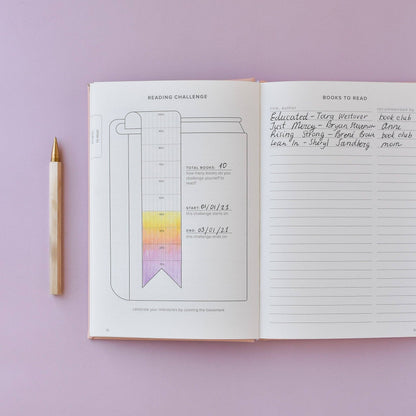 READING CHALLENGE
TOTAL BOOKS: 10
how many books do you
challenge yourself to
read?
START: 01/01/21
this challenge starts on:
END: 03/01/21
this challenge ends on:
celebrate your milestones by coloring the bookmark
BOOKS TO READ
title, author
recommended by
Educated - Tara Westover book club
Just Mercy - Bryan Stevenson Anne
Rising Strong - Brené Brown book club
Lean In - Sheryl Sandberg mom